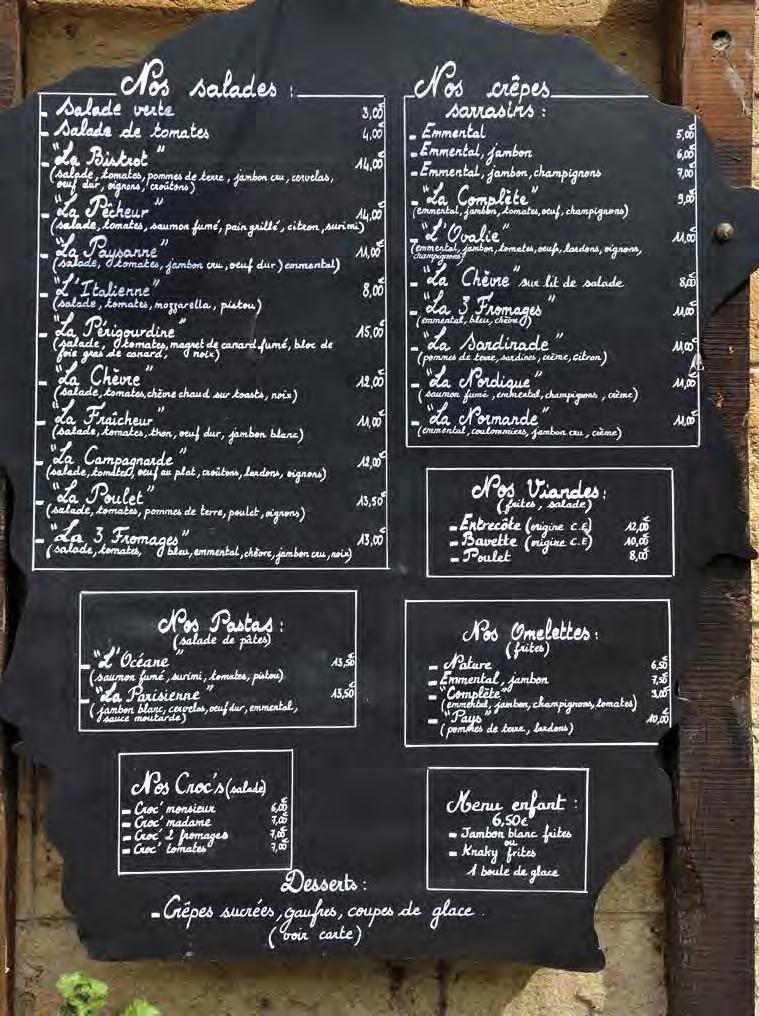 Nos salades :
- Salade verte 3,00€
- Salade de tomates 4,00€
- "La Bistrot" 14,00€
(salade, tomates, pommes de terre, jambon cru, cervelas,
oeuf dur, oignons, croûtons)
- "La Pêcheur" 14,00€
(salade, tomates, saumon fumé, pain grillé, citron, surimi)
- "La Paysanne" 11,00€
(salade, tomates, jambon cru, oeuf dur, emmental)
- "L'Italienne" 8,00€
(salade, tomates, mozzarella, pistou)
- "La Périgourdine" 15,00€
(salade, tomates, magret de canard fumé, bloc de
foie gras de canard, noix)
- "La Chèvre" 12,00€
(salade, tomates, chèvre chaud sur toasts, noix)
- "La Fraîcheur" 11,00€
(salade, tomates, thon, oeuf dur, jambon blanc)
- "La Campagnarde" 12,00€
(salade, tomates, oeuf au plat, croûtons, lardons, oignons)
- "La Poulet" 13,50€
(salade, tomates, pommes de terre, poulet, oignons)
- "La 3 Fromages" 13,00€
(salade, tomates, bleu, emmental, chèvre, jambon cru, noix)
Nos crêpes
sarrasins :
- Emmental 5,00€
- Emmental, jambon 6,00€
- Emmental, jambon, champignons 7,00€
- "La Complète" 9,00€
(emmental, jambon, tomates, oeuf, champignons)
- "L'Ovalie" 11,00€
(emmental, jambon, tomates, oeufs, lardons, oignons,
champignons)
- "La Chèvre" sur lit de salade 8,00€
- "La 3 Fromages" 11,00€
(emmental, bleu, chèvre)
- "La Sardinade" 11,00€
(pommes de terre, sardines, crème, citron)
- "La Nordique" 11,00€
(saumon fumé, emmental, champignons, crème)
- "La Normande" 11,00€
(emmental, coulommiers, jambon cru, crème)
Nos Viandes :
(frites, salade)
- Entrecôte (origine C.E) 12,00€
- Bavette (origine C.E) 10,00€
- Poulet 8,00€
Nos Pastas :
(salade de pâtes)
- "L'Océane" 13,50€
(saumon fumé, surimi, tomates, pistou)
- "La Parisienne" 13,50€
(jambon blanc, cervelas, oeuf dur, emmental,
sauce moutarde)
Nos Omelettes :
(frites)
- Nature 6,50€
- Emmental, jambon 7,50€
- "Complète"
(emmental, jambon, champignons, tomates)
- "Pays" 10,00€
(pommes de terre, lardons)
Nos Croc's (salade)
- Croc' monsieur 6,00€
- Croc' madame 7,00€
- Croc' 2 fromages 7,00€
- Croc' tomates 7,00€
Menu enfant :
6,50€
- Jambon blanc frites
ou
- Knaky frites
1 boule de glace
Desserts :
- Crêpes sucrées, gaufres, coupes de glace.
(voir carte)